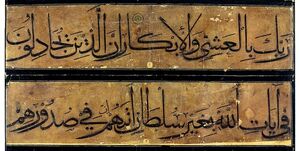 ربك بالعشي والإبكار إن الذين يجادلون
في آيات الله بغير سلطان أتاهم إن في صدورهم